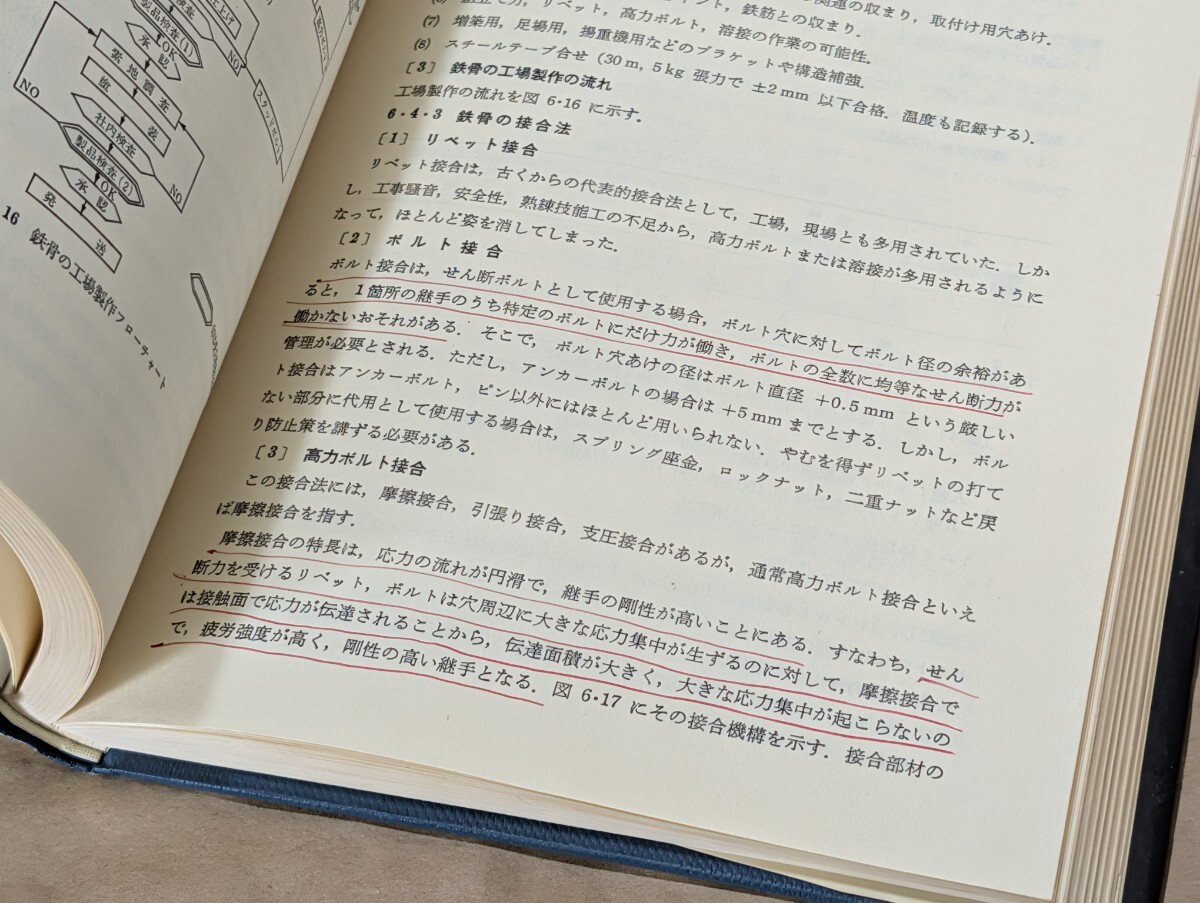 製品検査(1)
OK
承認
NO
素地調査
塗装
社内検査
製品検査(2)
NO
NO
OK
承認
発送
16 鉄骨の工場製作フローチャート
関連の収まり,取付け用穴あけ.
鉄筋との収まり.
リベット,高力ボルト,溶接の作業の可能性.
(7) 増築用,足場用,揚重機用などのブラケットや構造補強.
(8) スチールテープ合せ (30m, 5kg 張力で ±2mm 以下合格.温度も記録する).
〔3〕 鉄骨の工場製作の流れ
工場製作の流れを図 6・16 に示す.
6・4・3 鉄骨の接合法
〔1〕 リベット接合
リベット接合は,古くからの代表的接合法として,工場,現場とも多用されていた.しか
し,工事騒音,安全性,熟練技能工の不足から,高力ボルトまたは溶接が多用されるように
なって,ほとんど姿を消してしまった.
〔2〕 ボルト接合
ボルト接合は,せん断ボルトとして使用する場合,ボルト穴に対してボルト径の余裕があ
ると,1箇所の継手のうち特定のボルトにだけ力が働き,ボルトの全数に均等なせん断力が
働かないおそれがある.そこで,ボルト穴あけの径はボルト直径 +0.5mm という厳しい
管理が必要とされる.ただし,アンカーボルトの場合は +5mm までとする.しかし,ボル
ト接合はアンカーボルト,ピン以外にはほとんど用いられない.やむを得ずリベットの打て
ない部分に代用として使用する場合は,スプリング座金,ロックナット,二重ナットなど戻
り防止策を講ずる必要がある.
〔3〕 高力ボルト接合
この接合法には,摩擦接合,引張り接合,支圧接合があるが,通常高力ボルト接合といえ
ば摩擦接合を指す.
摩擦接合の特長は,応力の流れが円滑で,継手の剛性が高いことにある.すなわち,せん
断力を受けるリベット,ボルトは穴周辺に大きな応力集中が生ずるのに対して,摩擦接合で
は接触面で応力が伝達されることから,伝達面積が大きく,大きな応力集中が起こらないの
で,疲労強度が高く,剛性の高い継手となる.図 6・17 にその接合機構を示す.接合部材の